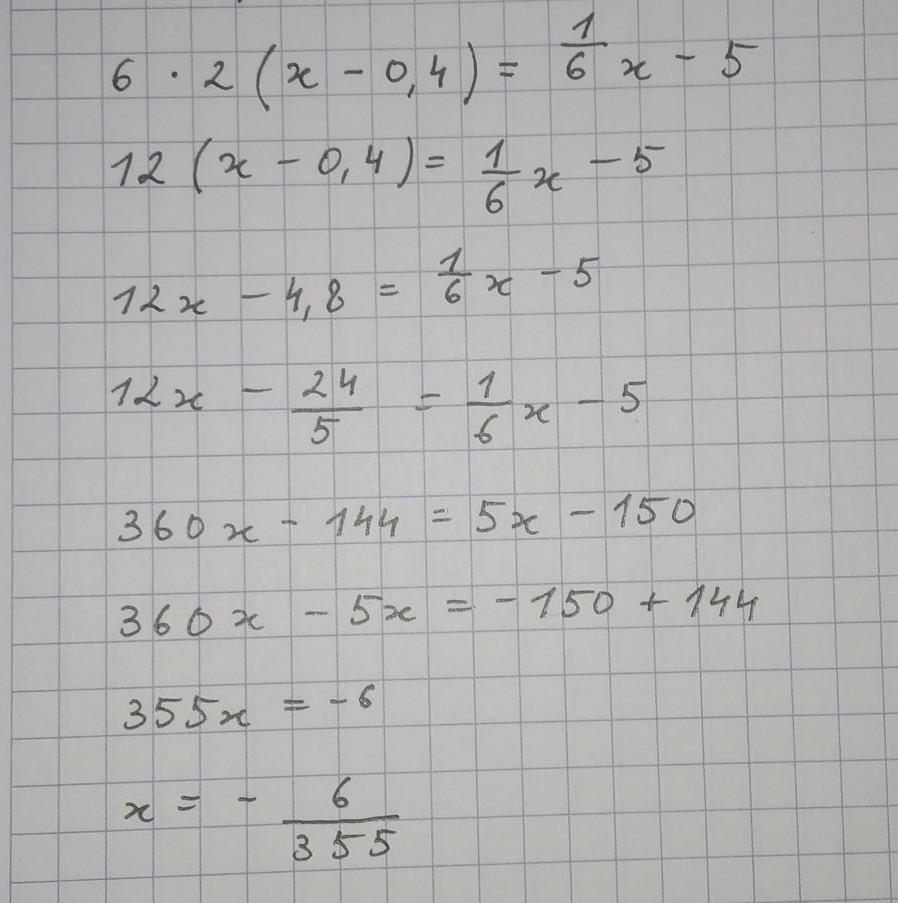 6 · 2 (x - 0,4) = 1/6 x - 5
12 (x - 0,4) = 1/6 x - 5
12x - 4,8 = 1/6 x - 5
12x - 24/5 = 1/6 x - 5
360x - 144 = 5x - 150
360x - 5x = -150 + 144
355x = -6
x = - 6/355